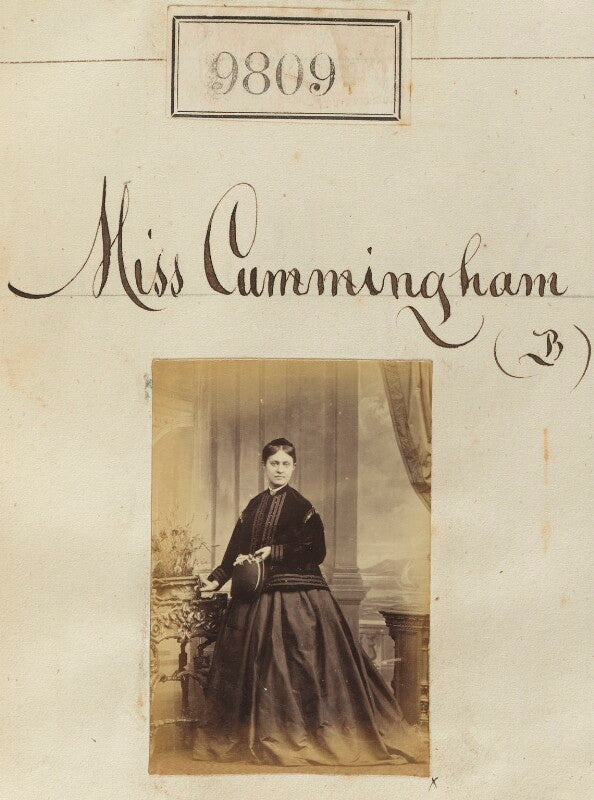 9809
Miss Cummingham
(B)
x